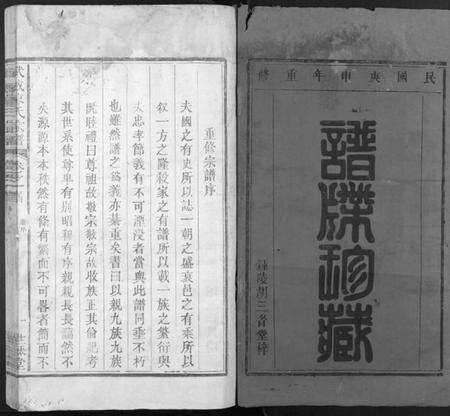 民國庚申年重修
譜牒珍藏
重修宗譜序
夫國之有史所以誌一朝之盛衰邑之有乘所以
叙一方之隆殺家之有譜所以載一族之繁衍與
夫忠孝節義有不可湮沒者當與此譜同垂不朽
也雖然譜之為義亦綦重矣書曰以親九族九族
既睦禮曰尊祖故敬宗敬宗故收族正其倫紀考
其世系使尊卑有別昭穆有序親親長長藹然不
失源源本本秩然有條有紊而不可畧者簡而不